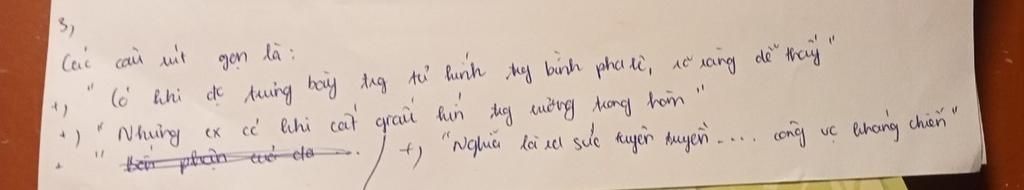 3,
Các câu rút gọn là:
+, " Có khi đc trưng bày trg tủ kính trg bình pha lê, rõ ràng dễ thấy"
+, " Nhưng cx có khi cất giấu kín trg rương trong hòm"
+ " bổn phận của cta . +, "Nghĩa là ra sức tuyên truyền .... công vc kháng chiến"